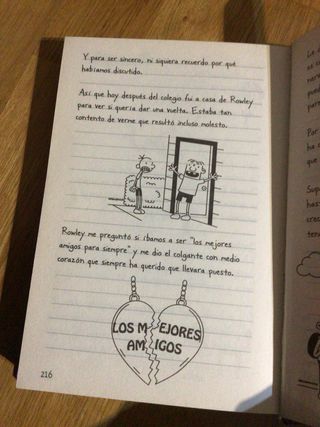 Y para ser sincero, ni siquiera recuerdo por qué
habíamos discutido.
Así que hoy después del colegio fui a casa de Rowley
para ver si quería dar una vuelta. Estaba tan
contento de verme que resultó incluso molesto.
Rowley me preguntó si íbamos a ser "los mejores
amigos para siempre" y me dio el colgante con medio
corazón que siempre ha querido que llevara puesto.
LOS MEJORES
AMIGOS
216